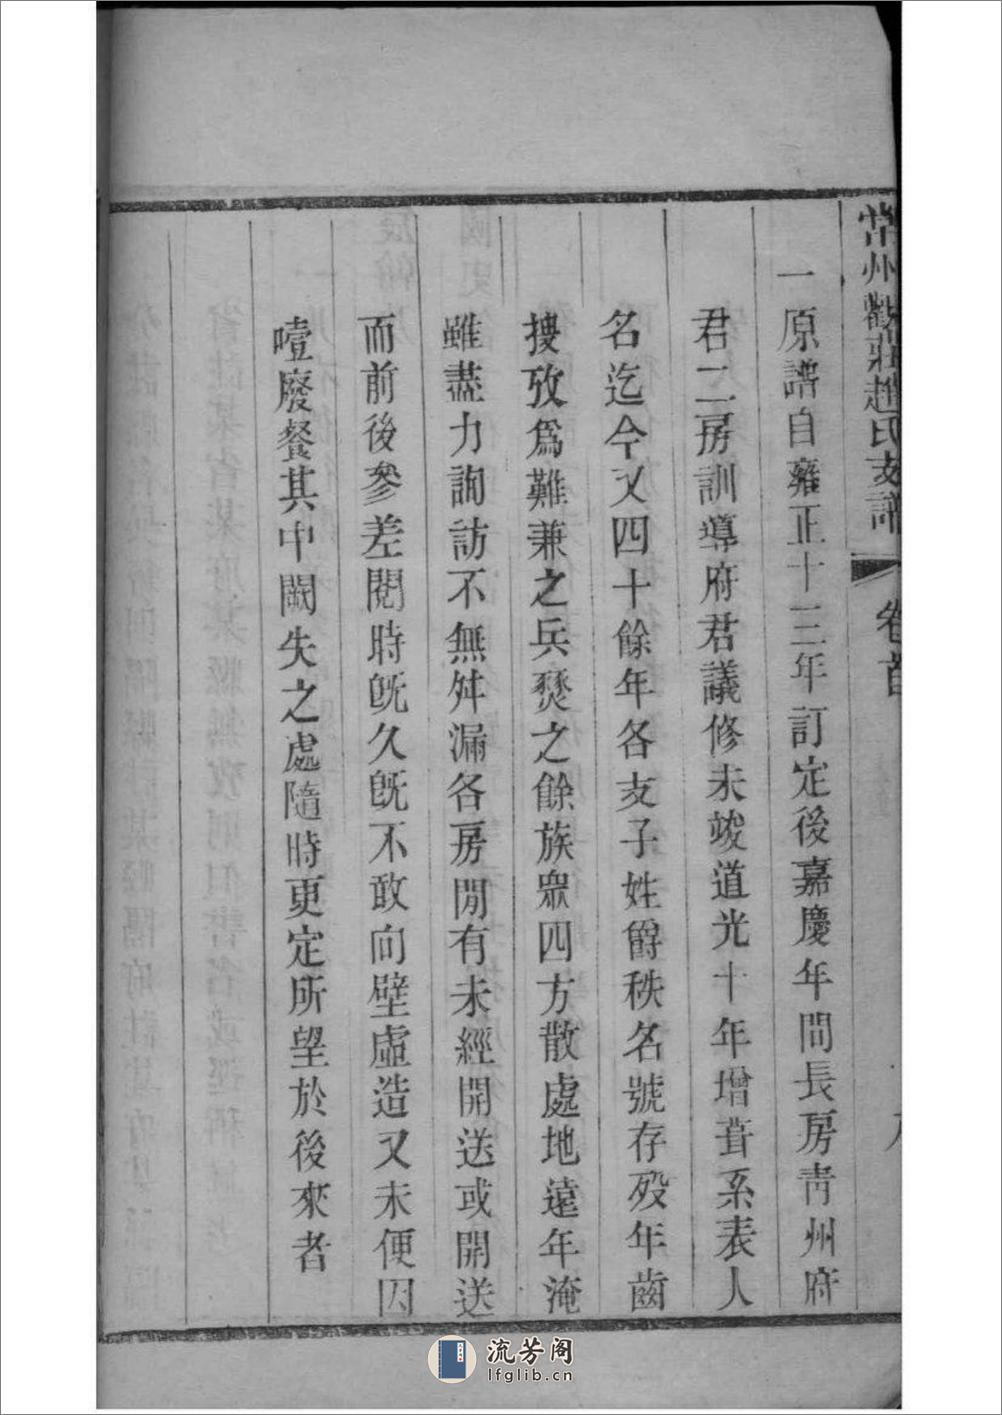 常州觀莊趙氏支譜
卷首
一原譜自雍正十三年訂定後嘉慶年間長房靑州府
君二房訓導府君議修未竣道光十年增葺系表人
名迄今又四十餘年各支子姓爵秩名號存歿年齒
搜攷爲難兼之兵燹之餘族眾四方散處地遠年淹
雖盡力詢訪不無舛漏各房閒有未經開送或開送
而前後參差閱時旣久旣不敢向壁虛造又未便因
噎廢餐其中闕失之處隨時更定所望於後來者
流芳阁
lfglib.cn